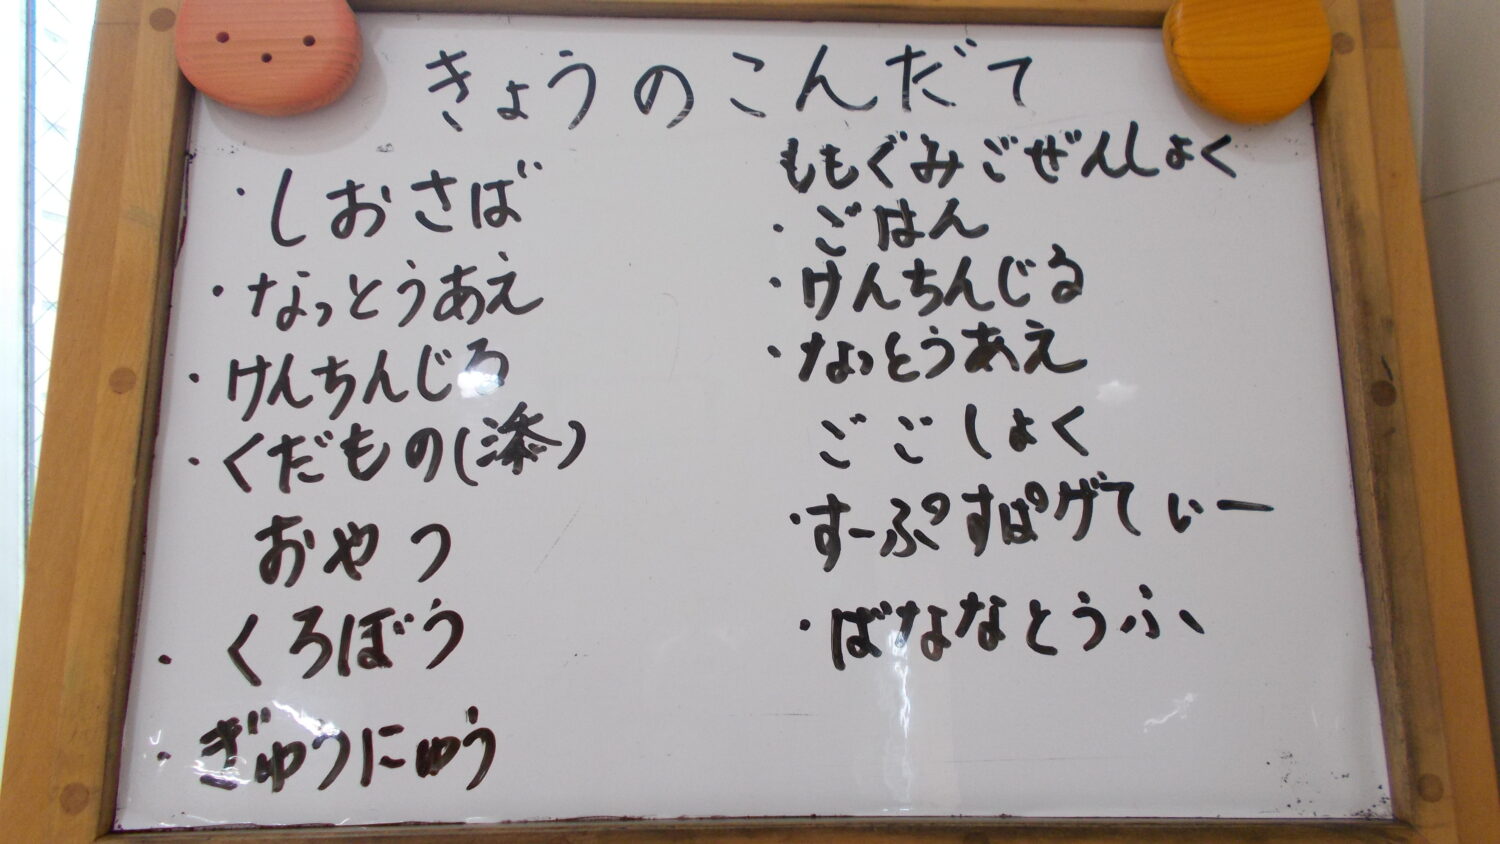 きょうのこんだて
・しおさば
・なっとうあえ
・けんちんじる
・くだもの()
おやつ
・くろぼう
・ぎゅうにゅう
ももぐみごぜんしょく
・ごはん
・けんちんじる
・なっとうあえ
ごごしょく
・すーぷすぱげてぃー
・ばななとうふ